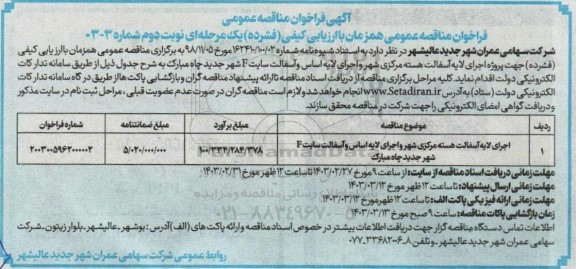 آگهی فراخوان مناقصه عمومی
فراخوان مناقصه عمومی همزمان با ارزیابی کیفی (فشرده) یک مرحله‌ای نوبت دوم شماره ۳-۰۳
شرکت سهامی عمران شهر جدید عالیشهر در نظر دارد به استناد شیوه نامه شماره ۱۶۲۴۱۰/۱۰۰/۰۲ مورخ ۹۸/۱۱/۰۵ به برگزاری مناقصه عمومی همزمان با ارزیابی کیفی
(فشرده) جهت پروژه اجرای لایه آسفالت هسته مرکزی شهر و اجرای لایه اساس و آسفالت سایت F شهر جدید چاه مبارک به شرح جدول ذیل از طریق سامانه تدارکات
الکترونیکی دولت اقدام نماید. کلیه مراحل برگزاری مناقصه از دریافت اسناد مناقصه تا ارائه پیشنهاد مناقصه گران و بازگشایی پاکت ها از طریق درگاه سامانه تدارکات
الکترونیکی دولت (ستاد) به آدرس www.Setadiran.ir انجام خواهد شد و لازم است مناقصه گران در صورت عدم عضویت قبلی، مراحل ثبت نام در سایت مذکور
و دریافت گواهی امضای الکترونیکی را جهت شرکت در مناقصه محقق سازند.
ردیف موضوع مناقصه مبلغ برآورد مبلغ ضمانتنامه شماره فراخوان
۱ اجرای لایه آسفالت هسته مرکزی شهر و اجرای لایه اساس و آسفالت سایت F شهر جدید چاه مبارک ۱۰۰/۳۳۴/۲۸۴/۳۷۸ ۵/۰۲۰/۰۰۰/۰۰۰ ۲۰۰۳۰۰۵۹۶۲۰۰۰۰۰۲
مهلت زمانی دریافت اسناد مناقصه از سایت: از ساعت ۹ مورخ ۱۴۰۳/۰۲/۲۷ تا ساعت ۱۲ ظهر مورخ ۱۴۰۳/۰۲/۳۱.
مهلت زمانی ارسال پیشنهاد: تا ساعت ۱۲ ظهر مورخ ۱۴۰۳/۰۳/۱۲
مهلت زمانی ارائه فیزیکی پاکت الف: تا ساعت ۱۲ ظهر مورخ ۱۴۰۳/۰۳/۱۲
زمان بازگشایی پاکات مناقصه: ساعت ۹ صبح مورخ ۱۴۰۳/۰۳/۱۳
اطلاعات تماس دستگاه مناقصه گزار جهت دریافت اطلاعات بیشتر در خصوص اسناد مناقصه و ارائه پاکت های (الف) آدرس: بوشهر ـ عالیشهر ـ بلوار زیتون ـ شرکت
سهامی عمران شهر جدید عالیشهر ـ و تلفن ۸ـ۰۷۷-۳۳۶۸۲۰۰۶
روابط عمومی شرکت سهامی عمران شهر جدید عالیشهر
۰۲۱-۸۸۳۴۹۶۷۰-۵